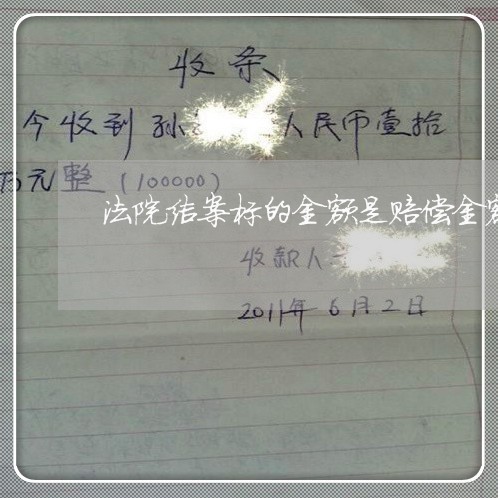 收条
今收到孙 人民币壹拾
万元整(100000)
法院结案标的金额是赔偿金额
收款人
2011年6月2日